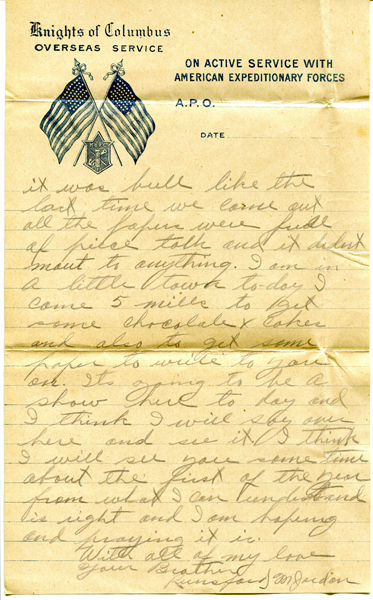 Knights of Columbus
OVERSEAS SERVICE
ON ACTIVE SERVICE WITH
AMERICAN EXPEDITIONARY FORCES
A.P.O.
DATE
it was bull like the
last time we come out
all the papers were full
of piece talk and it didnt
mout to anything. I am in
a little town to-day I
come 5 mills to get
some chocolate & cakes
and also to get some
paper to write to you
on. Its going to be a
show here to day and
I think I will stay over
here and see it. I think
I will see you some time
about the first of the year
from what I can understand
is right and I am hoping
and praying it is.
With all of my love
Your Brother
Lunsford J M Jordan